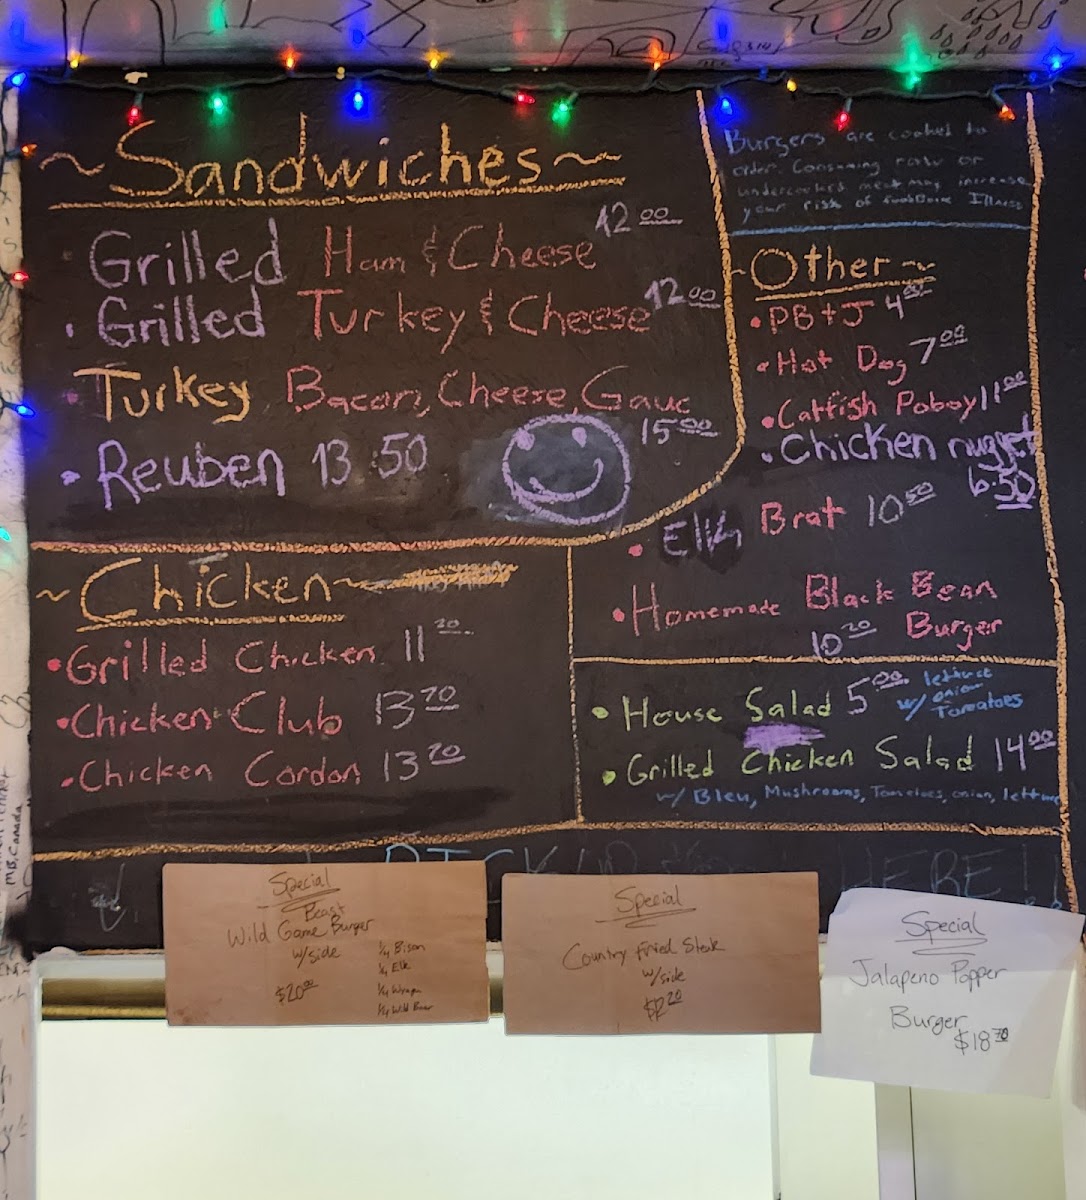 ~Sandwiches~
• Grilled Ham & Cheese 12 00
• Grilled Turkey & Cheese 12 00
• Turkey Bacon, Cheese, Gauc
15 00
• Reuben 13.50
~Chicken~
• Grilled Chicken 11 20
• Chicken Club 13 70
• Chicken Cordon 13 20
Burgers are cooked to
order. Consuming raw or
undercooked meat may increase
your risk of foodborne Illness
~Other~
• PB+J 4
• Hot Dog 7 00
• Catfish Poboy 11 00
• Chicken nugget
6.50
• Elk Brat 10 50
• Homemade Black Bean
10 20 Burger
• House Salad 5 00 w/ lettuce
onion
Tomatoes
• Grilled Chicken Salad 14 00
w/ Bleu, Mushrooms, Tomatoes, onion, lettuce
HERE!!
Special
Beast
Wild Game Burger
w/side
$20 00
1/4 Bison
1/4 Elk
1/4 Wagyu
1/4 Wild Boar
Special
Country Fried Steak
w/side
Special
Jalapeno Popper
Burger
$18 70
MB, Canada